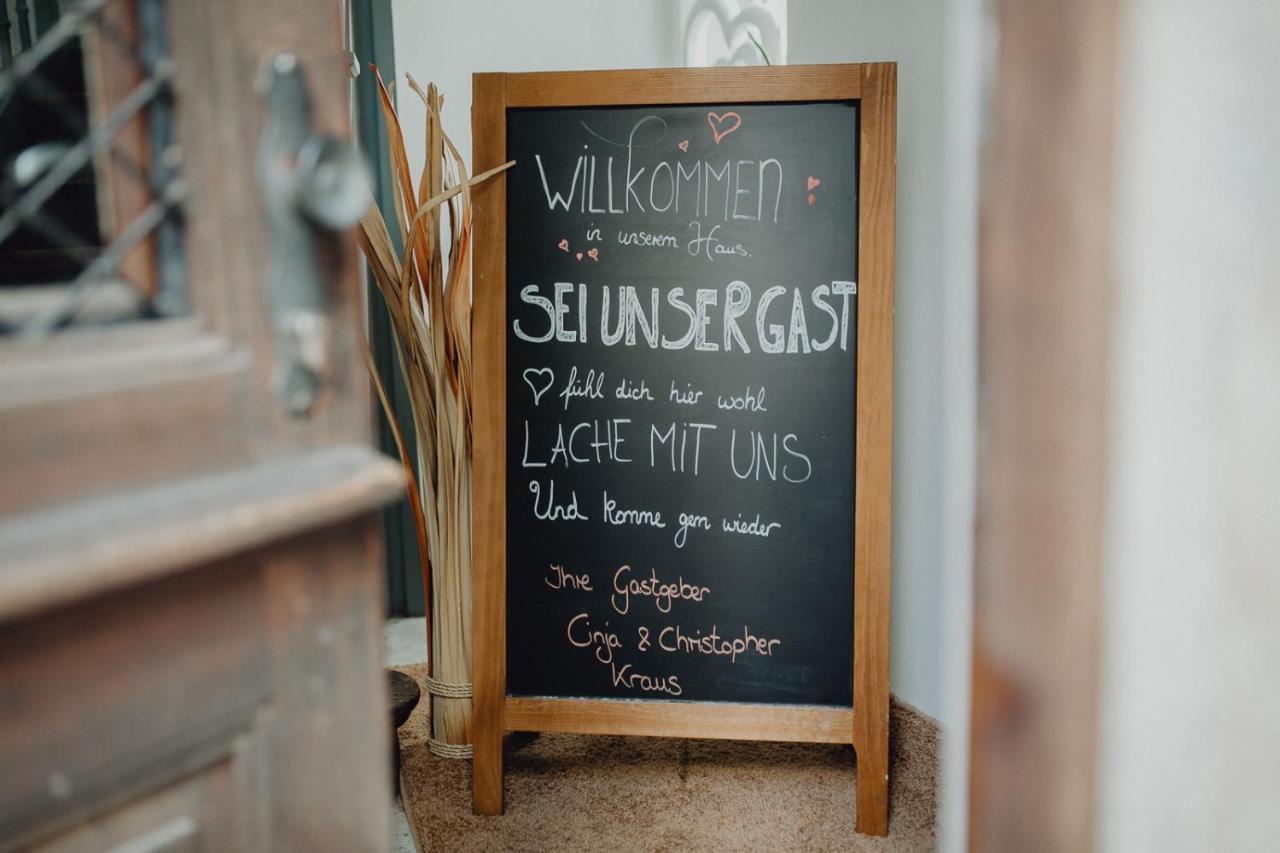 WILLKOMMEN
in unserem Haus.
SEI UNSER GAST
fühl dich hier wohl
LACHE MIT UNS
Und komme gern wieder
Ihre Gastgeber
Cinja & Christopher
Kraus